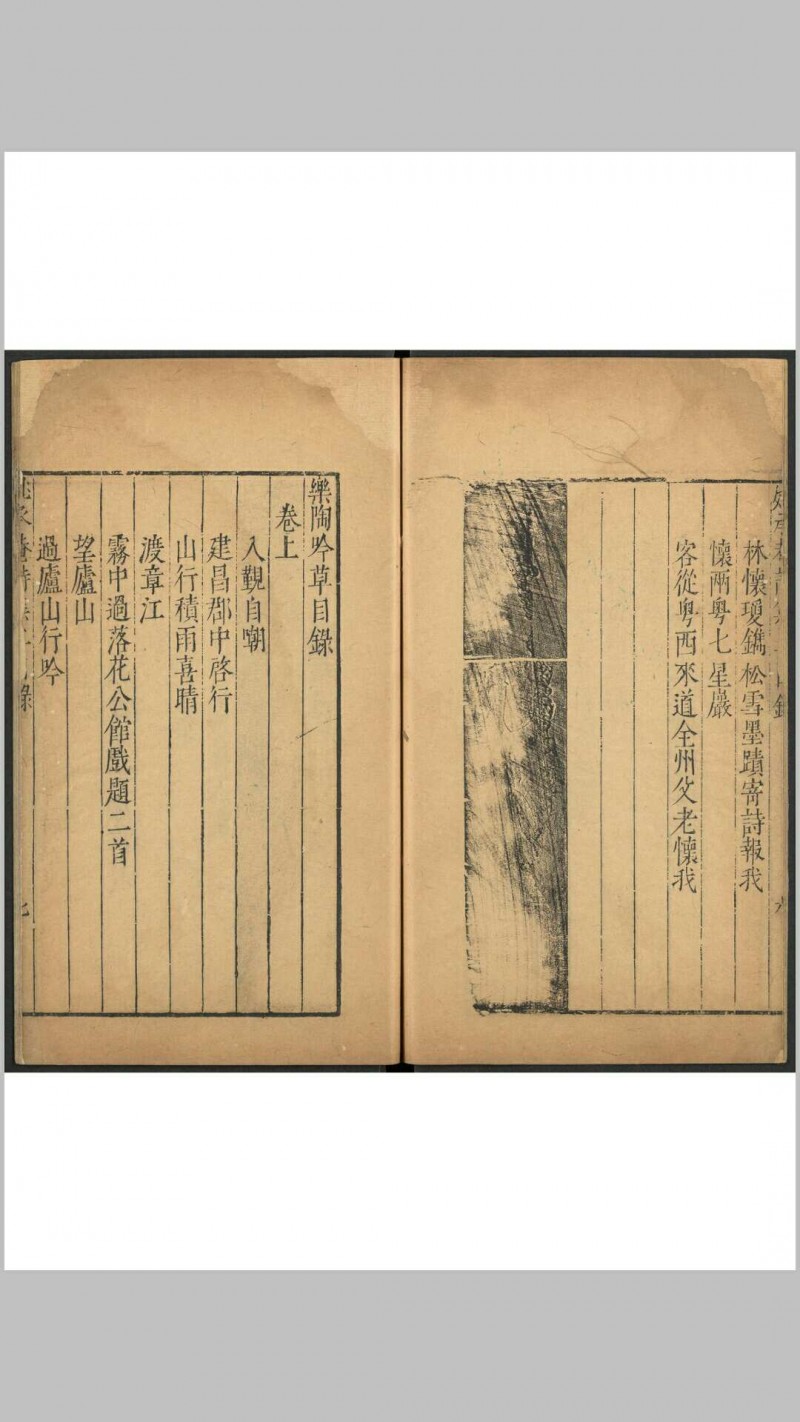 林懷瓊鐫松雪墨蹟寄詩報我
懷兩粤七星巖
客從粤西來道全州父老懷我
樂陶吟草目錄
卷上
入覲自嘲
建昌郡中啓行
山行積雨喜晴
渡章江
霧中過落花公館戲題二首
望廬山
過廬山行吟